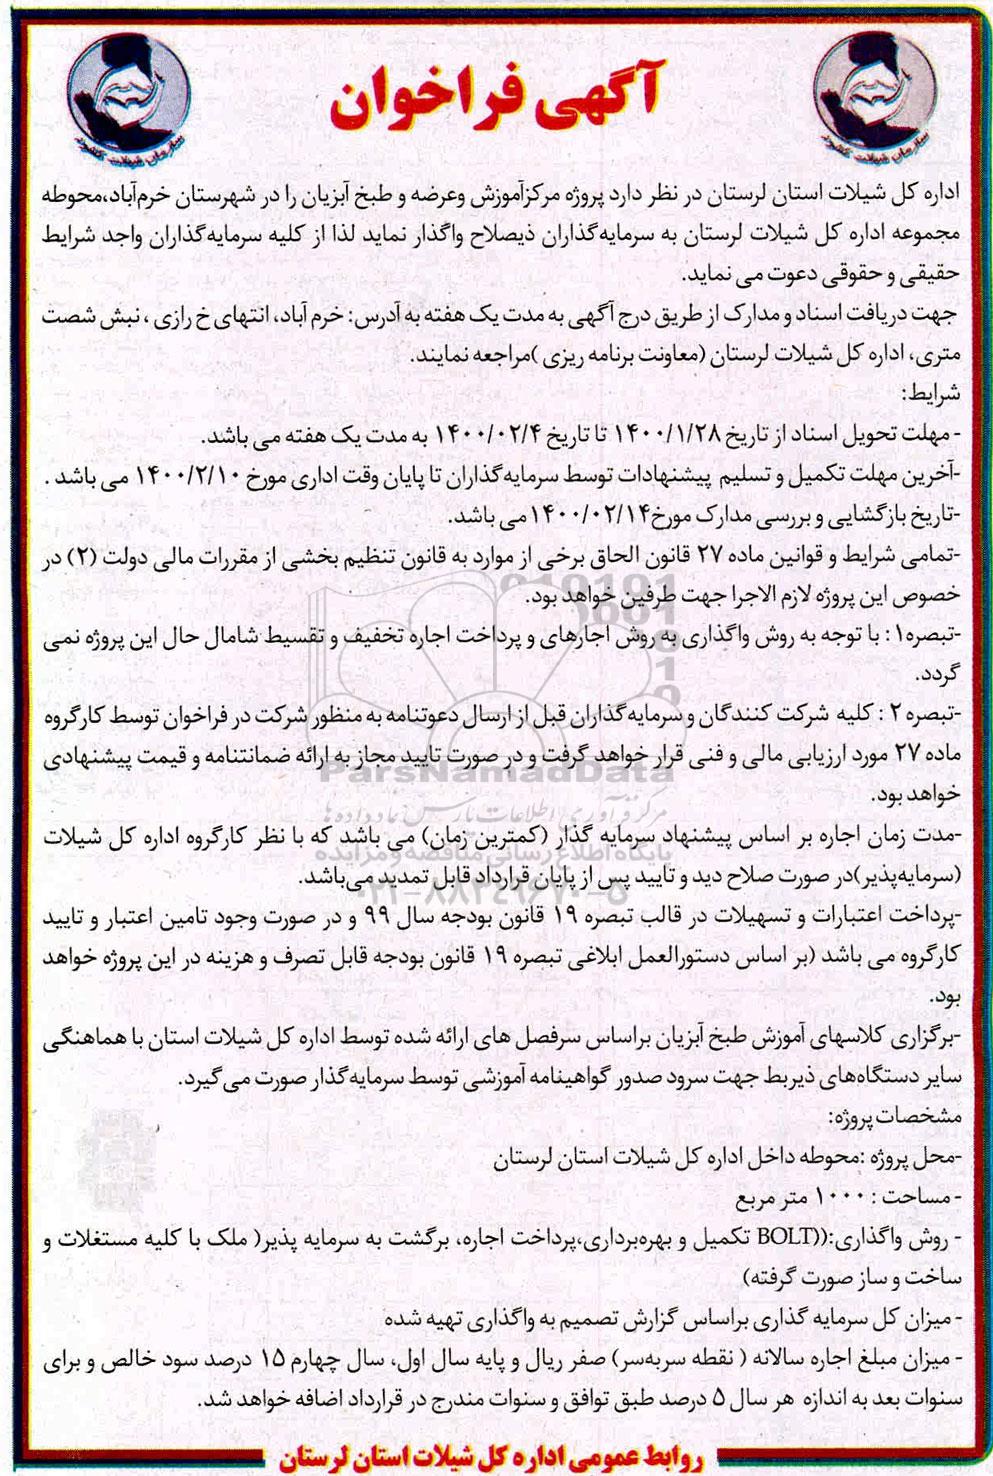 آگهی فراخوان
سازمان شیلات کشور
سازمان شیلات کشور
اداره کل شیلات استان لرستان در نظر دارد پروژه مرکزآموزش وعرضه و طبخ آبزیان را در شهرستان خرم‌آباد،محوطه
مجموعه اداره کل شیلات لرستان به سرمایه‌گذاران ذیصلاح واگذار نماید لذا از کلیه سرمایه‌گذاران واجد شرایط
حقیقی و حقوقی دعوت می نماید.
جهت دریافت اسناد و مدارک از طریق درج آگهی به مدت یک هفته به آدرس: خرم آباد، انتهای خ رازی ، نبش شصت
متری، اداره کل شیلات لرستان (معاونت برنامه ریزی )مراجعه نمایند.
شرایط:
- مهلت تحویل اسناد از تاریخ ۱۴۰۰/۱/۲۸ تا تاریخ ۱۴۰۰/۰۲/۴ به مدت یک هفته می باشد.
-آخرین مهلت تکمیل و تسلیم پیشنهادات توسط سرمایه‌گذاران تا پایان وقت اداری مورخ ۱۴۰۰/۲/۱۰ می باشد .
-تاریخ بازگشایی و بررسی مدارک مورخ۱۴۰۰/۰۲/۱۴ می باشد.
-تمامی شرایط و قوانین ماده ۲۷ قانون الحاق برخی از موارد به قانون تنظیم بخشی از مقررات مالی دولت (۲) در
خصوص این پروژه لازم الاجرا جهت طرفین خواهد بود.
-تبصره۱: با توجه به روش واگذاری به روش اجارهای و پرداخت اجاره تخفیف و تقسیط شامال حال این پروژه نمی
گردد.
-تبصره ۲ : کلیه شرکت کنندگان و سرمایه‌گذاران قبل از ارسال دعوتنامه به منظور شرکت در فراخوان توسط کارگروه
ماده ۲۷ مورد ارزیابی مالی و فنی قرار خواهد گرفت و در صورت تایید مجاز به ارائه ضمانتنامه و قیمت پیشنهادی
ParsNamadData
خواهد بود.
مرکز فرآوری اطلاعات پارس نماد داده ها
-مدت زمان اجاره بر اساس پیشنهاد سرمایه گذار (کمترین زمان) می باشد که با نظر کارگروه اداره کل شیلات
پایگاه اطلاع رسانی مناقصه و مزایده
(سرمایه‌پذیر)در صورت صلاح دید و تایید پس از پایان قرارداد قابل تمدید می‌باشد.
۰۲۱-۸۸۳۴۹۶۷۰-۵
-پرداخت اعتبارات و تسهیلات در قالب تبصره ۱۹ قانون بودجه سال ۹۹ و در صورت وجود تامین اعتبار و تایید
کارگروه می باشد (بر اساس دستورالعمل ابلاغی تبصره ۱۹ قانون بودجه قابل تصرف و هزینه در این پروژه خواهد
بود.
-برگزاری کلاسهای آموزش طبخ آبزیان براساس سرفصل های ارائه شده توسط اداره کل شیلات استان با هماهنگی
سایر دستگاه‌های ذیربط جهت سرود صدور گواهینامه آموزشی توسط سرمایه‌گذار صورت می‌گیرد.
مشخصات پروژه:
-محل پروژه :محوطه داخل اداره کل شیلات استان لرستان
- مساحت : ۱۰۰۰ متر مربع
- روش واگذاری:((BOLT تکمیل و بهره‌برداری،پرداخت اجاره، برگشت به سرمایه پذیر( ملک با کلیه مستغلات و
ساخت و ساز صورت گرفته)
- میزان کل سرمایه گذاری براساس گزارش تصمیم به واگذاری تهیه شده
- میزان مبلغ اجاره سالانه ( نقطه سربه‌سر) صفر ریال و پایه سال اول، سال چهارم ۱۵ درصد سود خالص و برای
سنوات بعد به اندازه هر سال ۵ درصد طبق توافق و سنوات مندرج در قرارداد اضافه خواهد شد.
روابط عمومی اداره کل شیلات استان لرستان